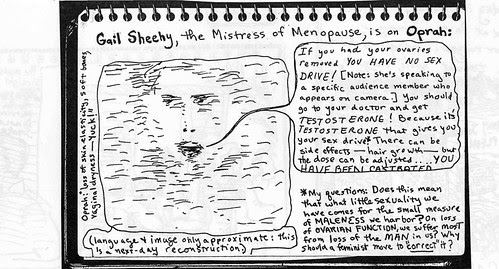 Gail Sheehy, the Mistress of Menopause, is on Oprah:
Oprah: "loss of skin elasticity, soft bones,
vaginal dryness — YUCK!"
If you had your ovaries
removed YOU HAVE NO SEX
DRIVE! [Note: she's speaking to
a specific audience member who
appears on camera.] You should
go to your doctor and get
TESTOSTERONE! Because it's
TESTOSTERONE that gives you
your sex drive* There can be
side effects — hair growth — but
the dose can be adjusted....YOU
HAVE BEEN CASTRATED
(language & image only approximate: this
is a next-day reconstruction.)
*My question: Does this mean
that what little sexuality we
have comes for the small measure
of MALENESS we harbor? On loss
of OVARIAN FUNCTION, we suffer most
from loss of the MAN in us? Why
should a feminist move to correct "it"?